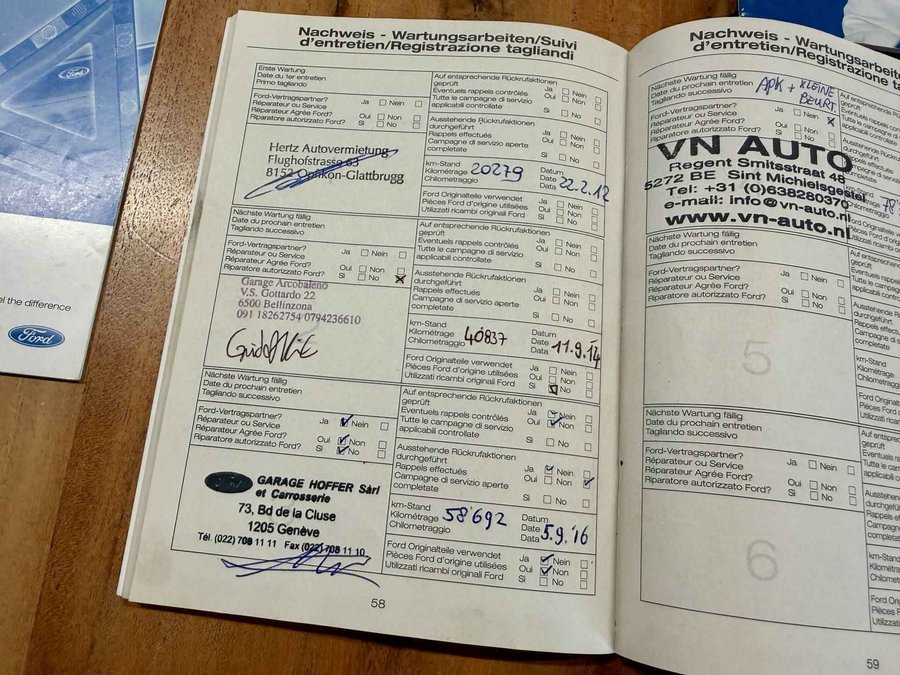 Ford
el the difference
Ford
Nachweis - Wartungsarbeiten/Suivi
d'entretien/Registrazione tagliandi
Erste Wartung
Date du 1er entretien
Primo tagliando
Ford-Vertragspartner? Ja Nein
Réparateur ou Service
Réparateur Agrée Ford? Oui Non
Riparatore autorizzato Ford? Si No
Hertz Autovermietung
Flughofstrasse 63
8152 Opfikon-Glattbrugg
Auf entsprechende Rückrufaktionen
geprüft
Eventuels rappels contrôlés Ja Nein
Tutte le campagne di servizio Oui Non
applicabili controllate Si No
Ausstehende Rückrufaktionen
durchgeführt
Rappels effectués Ja Nein
Campagne di servizio aperte Oui Non
completate Si No
km-Stand Datum
Kilométrage 20279 Date 22.2.12
Chilometraggio Data
Ford Originalteile verwendet Ja Nein
Pièces Ford d'origine utilisées Oui Non
Utilizzati ricambi originali Ford Si No
Nächste Wartung fällig
Date du prochain entretien
Tagliando successivo
Ford-Vertragspartner? Ja Nein
Réparateur ou Service
Réparateur Agrée Ford? Oui Non
Riparatore autorizzato Ford? Si No
Garage Arcobaleno
V.S. Gottardo 22
6500 Bellinzona
091 18262754 0794236610
Auf entsprechende Rückrufaktionen
geprüft
Eventuels rappels contrôlés Ja Nein
Tutte le campagne di servizio Oui Non
applicabili controllate Si No
Ausstehende Rückrufaktionen
durchgeführt
Rappels effectués Ja Nein
Campagne di servizio aperte Oui Non
completate Si No
km-Stand Datum
Kilométrage 40837 Date 11.9.14
Chilometraggio Data
Ford Originalteile verwendet Ja Nein
Pièces Ford d'origine utilisées Oui Non
Utilizzati ricambi originali Ford Si No
Nächste Wartung fällig
Date du prochain entretien
Tagliando successivo
Ford-Vertragspartner? Ja Nein
Réparateur ou Service
Réparateur Agrée Ford? Oui Non
Riparatore autorizzato Ford? Si No
Ford GARAGE HOFFER Sàrl
et Carrosserie
73, Bd de la Cluse
1205 Genève
Tél. (022) 708 11 11 Fax (022) 708 11 10
Auf entsprechende Rückrufaktionen
geprüft
Eventuels rappels contrôlés Ja Nein
Tutte le campagne di servizio Oui Non
applicabili controllate Si No
Ausstehende Rückrufaktionen
durchgeführt
Rappels effectués Ja Nein
Campagne di servizio aperte Oui Non
completate Si No
km-Stand Datum
Kilométrage 58'692 Date 5.9.'16
Chilometraggio Data
Ford Originalteile verwendet Ja Nein
Pièces Ford d'origine utilisées Oui Non
Utilizzati ricambi originali Ford Si No
58
Nachweis - Wartungsarbeiten
d'entretien/Registrazione ta
Nächste Wartung fällig
Date du prochain entretien APK + KLEINE
Tagliando successivo BEURT
Ford-Vertragspartner? Ja Nein
Réparateur ou Service
Réparateur Agrée Ford? Oui Non
Riparatore autorizzato Ford? Si No
VN AUTO
Regent Smitsstraat 48
5272 BE Sint Michielsgestel
Tel: +31 (0)638280370
e-mail: info@vn-auto.nl
www.vn-auto.nl
Auf entsprechende
geprüft
Eventuels rappels
Tutte le campagne
applicabili controllate
Ausstehende
durchgeführt
Rappels effectués
Campagne di
completate
km-Stand
Kilométrage 78
Chilometraggio
Ford Originalteile
Pièces Ford
Utilizzati
Nächste Wartung fällig
Date du prochain entretien
Tagliando successivo
Ford-Vertragspartner? Ja Nein
Réparateur ou Service
Réparateur Agrée Ford? Oui Non
Riparatore autorizzato Ford? Si No
5
Auf entspreche
geprüft
Eventuels rapp
Tutte le campa
applicabili cont
Ausstehende
durchgeführt
Rappels effec
Campagne di
completate
km-Stand
Kilométrage
Chilometragg
Ford Original
Pièces Ford
Utilizzati rica
Nächste Wartung fällig
Date du prochain entretien
Tagliando successivo
Ford-Vertragspartner? Ja Nein
Réparateur ou Service
Réparateur Agrée Ford? Oui Non
Riparatore autorizzato Ford? Si No
6
Auf entspre
geprüft
Eventuels ra
Tutte le cam
applicabili c
Ausstehen
durchgefüh
Rappels eff
Campagne
completate
km-Stand
Kilométrag
Chilomet
Ford Orig
Pièces Fo
Utilizzati
59